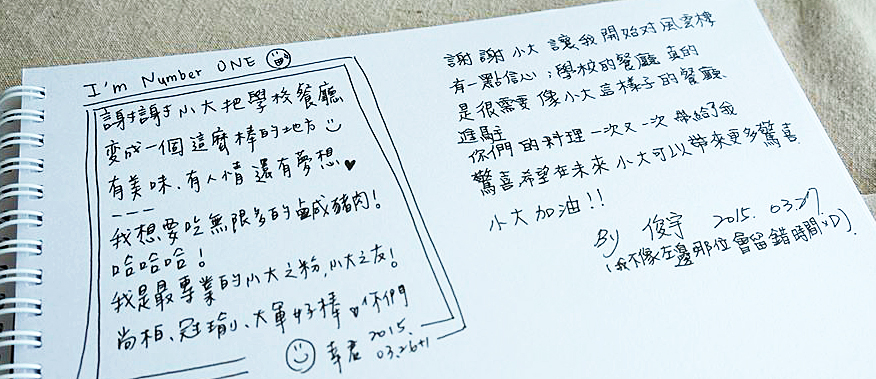 I'm Number ONE
謝謝小大把學校餐廳
變成一個這麼棒的地方
有美味、有人情還有夢想
我想要吃無限多的鹹豬肉!
哈哈哈!
我是最專業的小大之粉,小大之友!
尚柏、冠瑜、大軍好棒 你們
幸君 2015.
03.26+1
謝謝小大 讓我開始对風雲樓
有一點信心;學校的餐廳 真的
是很需要 像小大這樣子的餐廳
進駐
你們的料理一次又一次 帶給了我
驚喜 希望在未來 小大可以帶來更多驚喜
小大加油!!
By 俊宇 2015. 03.27.
(我不像左邊那位會留錯時間XD).